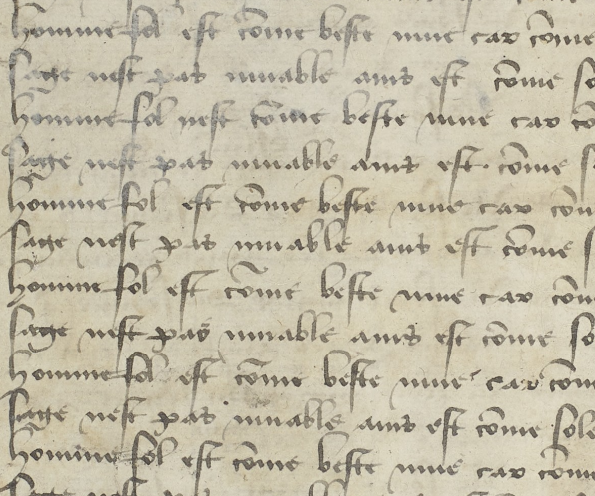 homme fol est cõme beste mue car cõme
sage nest pas muable ains est cõme so
homme fol nest cõme beste mue car cõ
sage nest pas muable ains est cõme s
homme fol est cõme beste mue car cõm
sage nest pas muable ains est cõme s
homme fol est cõme beste mue car cõm
sage nest pas muable ains est cõme so
homme fol est cõme beste mue car cõm
sage nest pas muable ains est cõme sole
homme fol est cõme beste mue car cõme